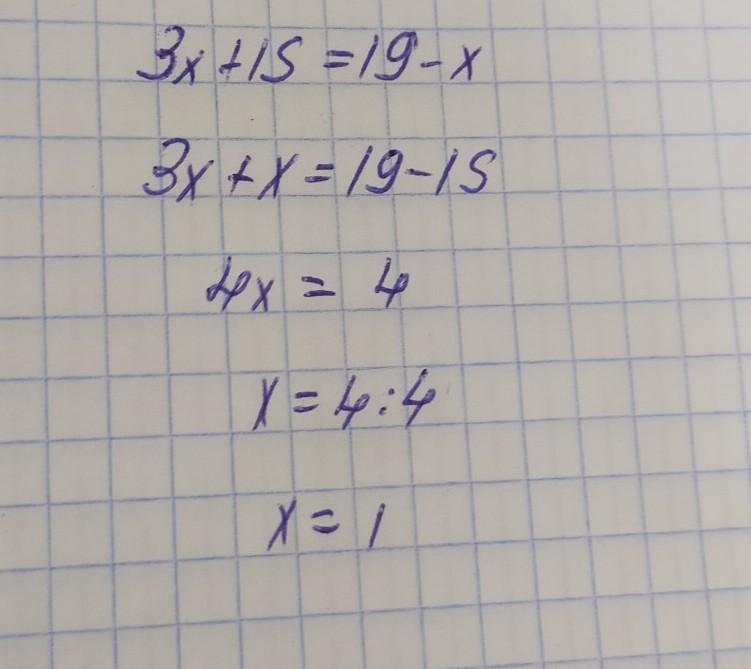 3x+15=19-x
3x+x=19-15
4x = 4
x=4:4
x=1